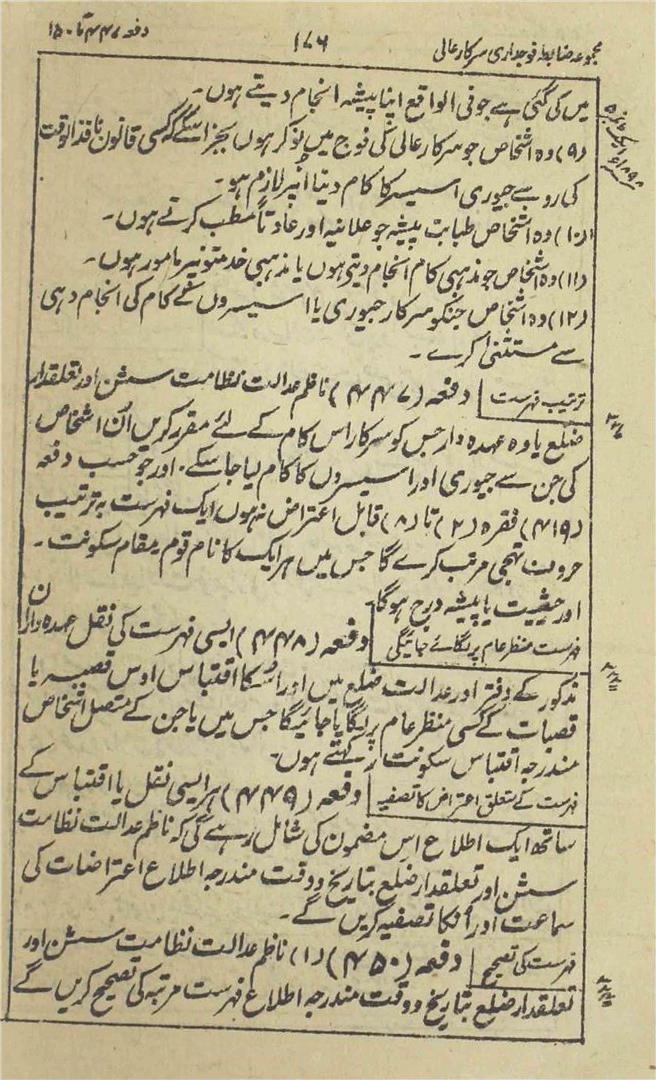 مجموعہ ضابطہ فوجداری سرکار عالی ۱۷۶ دفعہ ۴۴۷ تا ۴۵۰
میں کی گئی ہے جو فی الواقع اپنا پیشہ انجام دیتے ہوں۔
(۹) وہ اشخاص جو سرکار عالی کی فوج میں نوکر ہوں بجز اسکے کہ کسی قانون نافذ الوقت
کی رو سے جیوری اسیسر کا کام دینا اُنپر لازم ہو۔
(۱۰) وہ اشخاص طبابت پیشہ جو علانیہ اور عادتاً مطب کرتے ہوں۔
(۱۱) وہ اشخاص جو مذہبی کام انجام دیتے ہوں یا مذہبی خدمتونپر مامور ہوں۔
(۱۲) وہ اشخاص جنکو سرکار جیوری یا اسیسروں کے کام کی انجام دہی
سے مستثنیٰ کرے۔
ترتیب فہرست دفعہ (۴۴۷) ناظم عدالت نظامت سشن اور تعلقدار
ضلع یا وہ عہدہ دار جس کو سرکار اس کام کے لئے مقرر کریں اُن اشخاص
کی جن سے جیوری اور اسیسروں کا کام لیا جا سکے۔ اور جو حسب دفعہ
(۴۱۹) فقرہ (۲) تا (۸) قابل اعتراض نہوں ایک فہرست بہ ترتیب
حروف تہجی مرتب کرے گا جس میں ہر ایک کا نام قوم مقام سکونت۔
اور حیثیت یا پیشہ درج ہوگا۔
فہرست منظر عام پر لگائے جائیگی دفعہ (۴۴۸) ایسی فہرست کی نقل عہدہ داران
مذکور کے دفتر اور عدالت ضلع میں اور اُسکا اقتباس اوس قصبہ یا
قصبات کے کسی منظر عام پر لگایا جائیگا جس میں یا جن کے متصل اشخاص
مندرجہ اقتباس سکونت رکھتے ہوں۔
فہرست کے متعلق اعتراض کا تصفیہ دفعہ (۴۴۹) ہر ایسی نقل یا اقتباس کے
ساتھ ایک اطلاع اس مضمون کی شامل رہے گی کہ ناظم عدالت نظامت
سشن اور تعلقدار ضلع بتاریخ و وقت مندرجہ اطلاع اعتراضات کی
سماعت اور اُنکا تصفیہ کریں گے۔
فہرست کی تصحیح دفعہ (۴۵۰) (۱) ناظم عدالت نظامت سشن اور
تعلقدار ضلع بتاریخ و وقت مندرجہ اطلاع فہرست مرتبہ کی تصحیح کریں گے